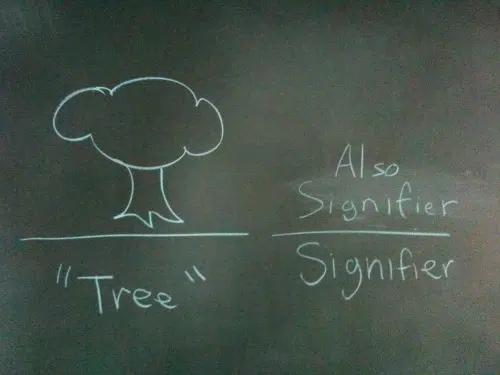 "Tree"
Also
Signifier
Signifier